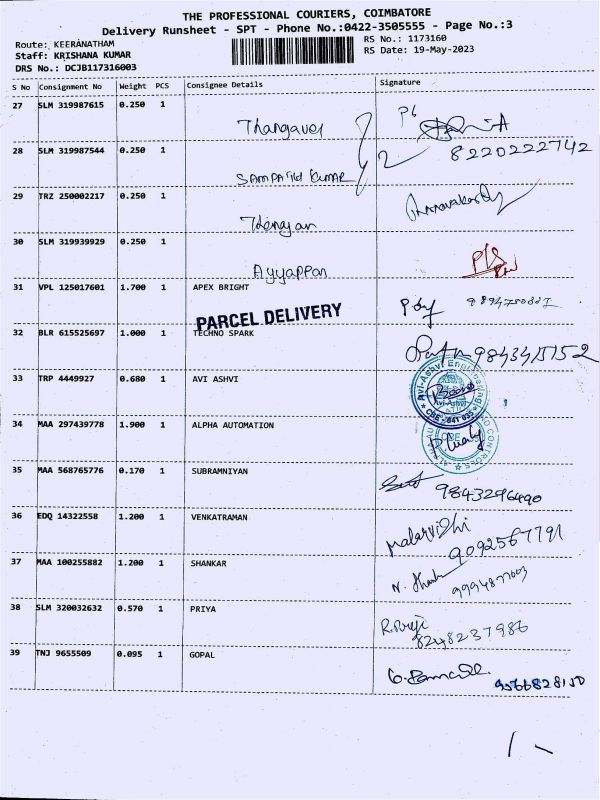 THE PROFESSIONAL COURIERS, COIMBATORE
Delivery Runsheet - SPT - Phone No.:0422-3505555 - Page No.:3
Route: KEERANATHAM
RS No.: 1173160
Staff: KRISHANA KUMAR
RS Date: 19-May-2023
DRS No.: DCJB117316003
S No Consignment No Weight PCS Consignee Details Signature
27 SLM 319987615 0.250 1
Thangavel
28 SLM 319987544 0.250 1
8220222742
SAMPATH KUMAR
29 TRZ 250002217 0.250 1
30 SLM 319939929 0.250 1
Ayyappan
31 VPL 125017601 1.700 1 APEX BRIGHT
PARCEL DELIVERY
32 BLR 615525697 1.000 1 TECHNO SPARK
33 TRP 4449927 0.680 1 AVI ASHVI
Avi-Ashvi Engineering
CBE - 641 035
34 MAA 297439778 1.900 1 ALPHA AUTOMATION
CBE
35 MAA 568765776 0.170 1 SUBRAMNIYAN
9843296490
36 EDQ 14322558 1.200 1 VENKATRAMAN
Malarvidhi
9092567791
37 MAA 100255882 1.200 1 SHANKAR
38 SLM 320032632 0.570 1 PRIYA
8248237986
39 TNJ 9655509 0.095 1 GOPAL
9566828150